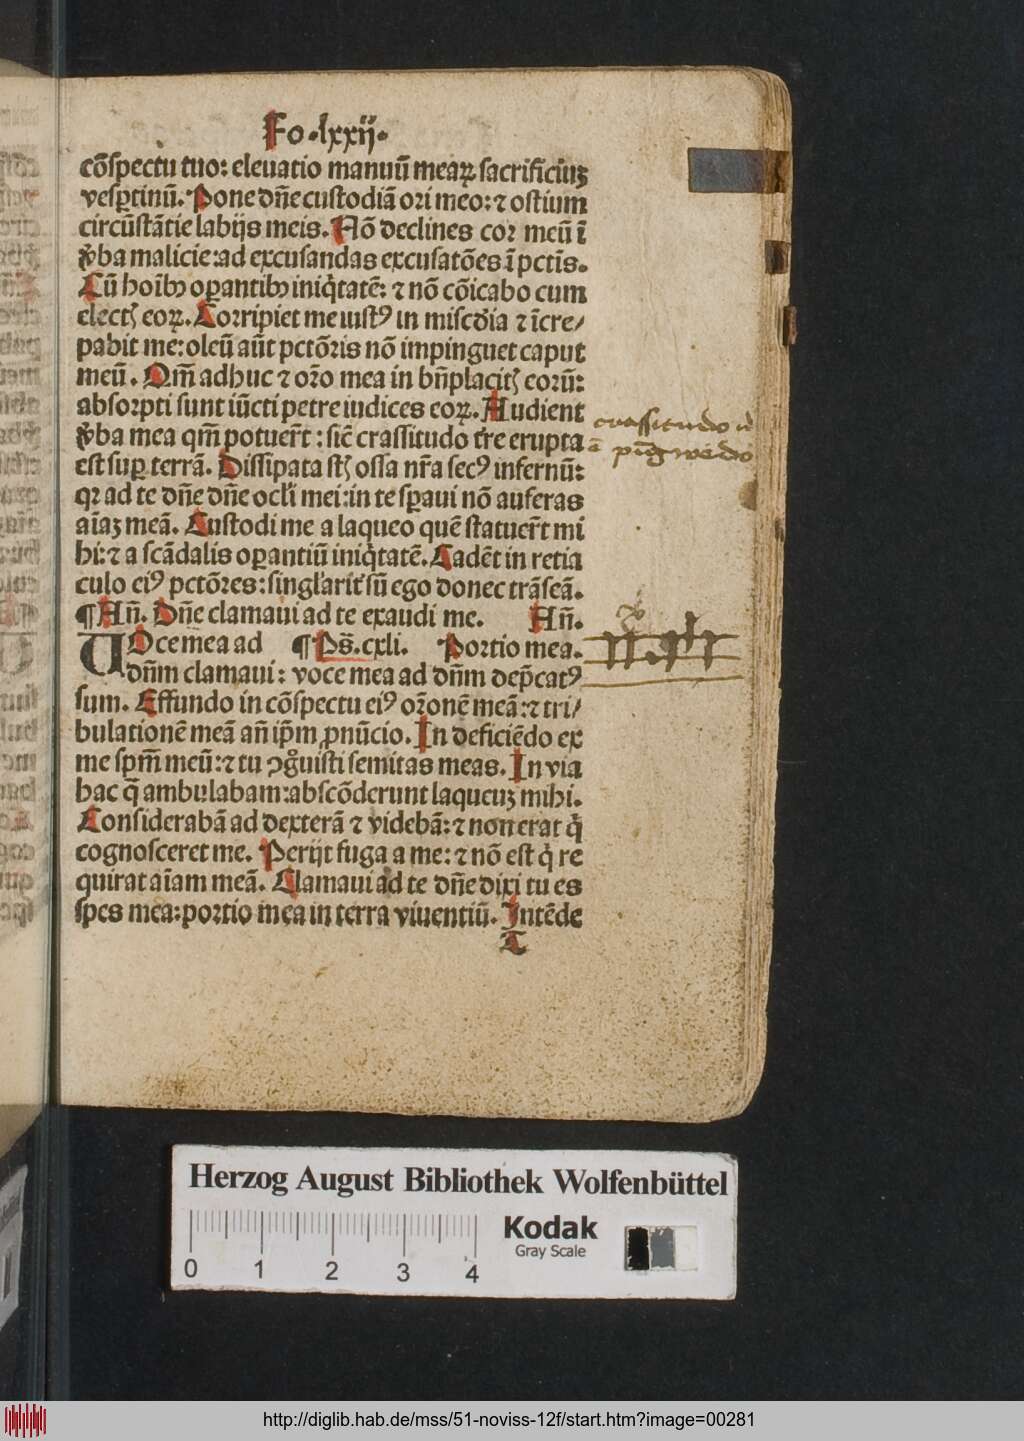 Fo·lxxij·
cōspectu tuo: eleuatio manuū meaꝝ sacrificiūꝫ
vesꝑtinū. Pone dn̄e custodiā ori meo: ⁊ ostium
circūstātie labijs meis. Nō declines cor meū ī
v̓ba malicie: ad excusandas excusatōes ī pctīs.
Cū hoībꝰ oꝑantibꝰ iniq̇tatē: ⁊ nō cōicabo cum
electꝭ eoꝝ. Corripiet me iustꝰ in misc̄dia ⁊ īcre/
pabit me: oleū aūt pctōris nō impinguet caput
meū. Qm̄ adhuc ⁊ or̄o mea in bn̄placitꝭ eorū:
absorpti sunt iūcti petre iudices eoꝝ. Audient
v̓ba mea qm̄ potuer̄t: sic̄ crassitudo tr̄e erupta
est suꝑ terrā. Dissipata st̄ ossa nr̄a secꝰ infernū:
qꝛ ad te dn̄e dn̄e ocl̄i mei: in te sꝑaui nō auferas
aīaꝫ meā. Custodi me a laqueo quē statuer̄t mi
hi: ⁊ a scādalis oꝑantiū iniq̇tatē. Cadēt in retia
culo eiꝰ pctōres: singl̄arit̓ sū ego donec trāseā.
¶ Añ. Dn̄e clamaui ad te exaudi me. Añ.
VOce mea ad ¶ Ps̄. cxli. Portio mea.
dn̄m clamaui: voce mea ad dn̄m dep̄catꝰ
sum. Effundo in cōspectu eiꝰ or̄onē meā: ⁊ tri/
bulationē meā añ ip̄m ꝓnūcio. In deficiēdo ex
me sp̄m meū: ⁊ tu ꝯgͦuisti semitas meas. In via
hac q̄ ambulabam: abscōderunt laqueuꝫ mihi.
Considerabā ad dexterā ⁊ videbā: ⁊ non erat q̇
cognosceret me. Perijt fuga a me: ⁊ nō est q̇ re
quirat aīam meā. Clamaui ad te dn̄e dixi tu es
spes mea: portio mea in terra viuentiū. Intēde
T
crassitudo
Herzog August Bibliothek Wolfenbüttel
Kodak
Gray Scale
0 1 2 3 4
http://diglib.hab.de/mss/51-noviss-12f/start.htm?image=00281